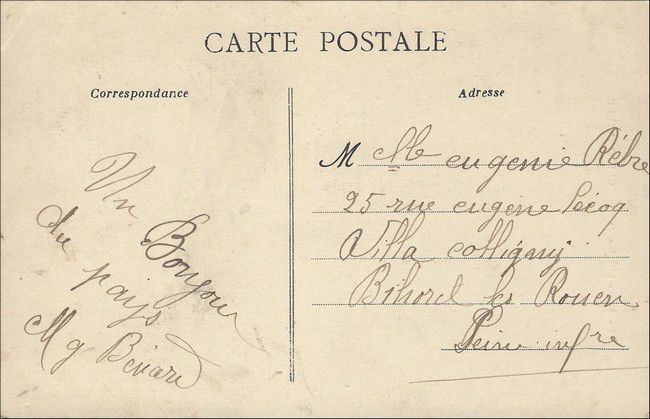 CARTE POSTALE
Correspondance
Adresse
Un Bonjour
du pays
Mg Bénard
M Mlle eugenie Rèbre
25 rue eugene Lécoq
Villa colligny
Bihorel les Rouen
Seine infre